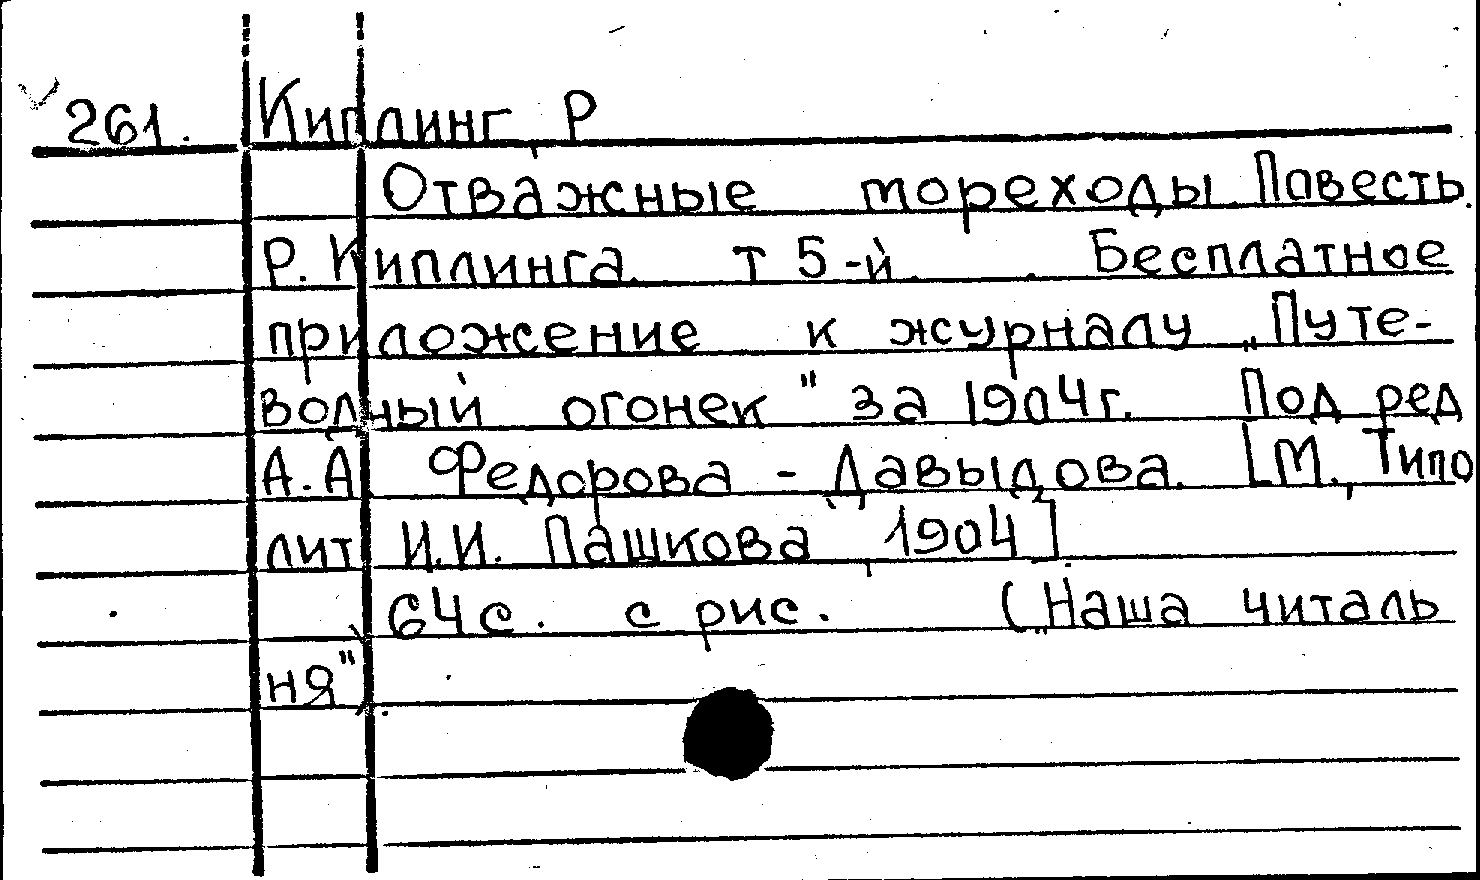 261. Киплинг, Р
Отважные мореходы. Повесть.
Р. Киплинга. т 5-й. Бесплатное
приложение к журналу „Путе-
водный огонек" за 1904г. Под ред
А.А. Федорова - Давыдова. [М., Типо
лит И.И. Пашкова, 1904].
64с. с рис. („Наша читаль
ня").